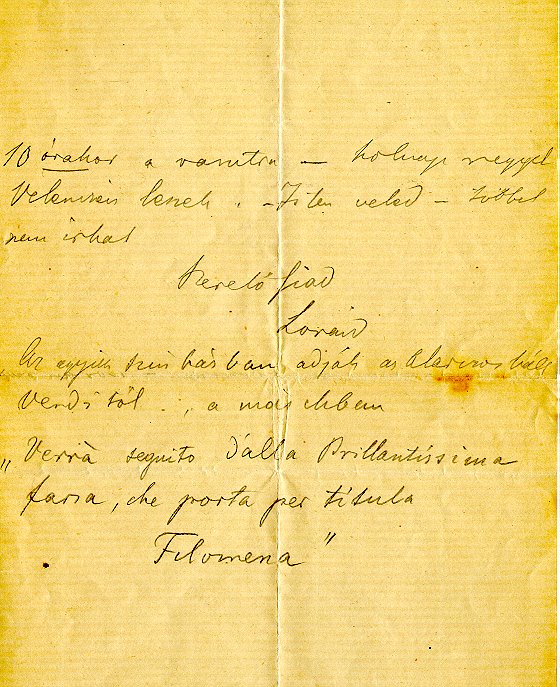 10 órakor a vasutra – holnap reggel
Velenczében leszek. – Isten veled – többet
nem irhat
Szerető fiad
Loránd
Az egyik szinházban adják az Alarczos bált
Verdi től . , a másikban
„Verrà seguito dalla Brillantíssima
farsa, che porta per titula
Filomena"